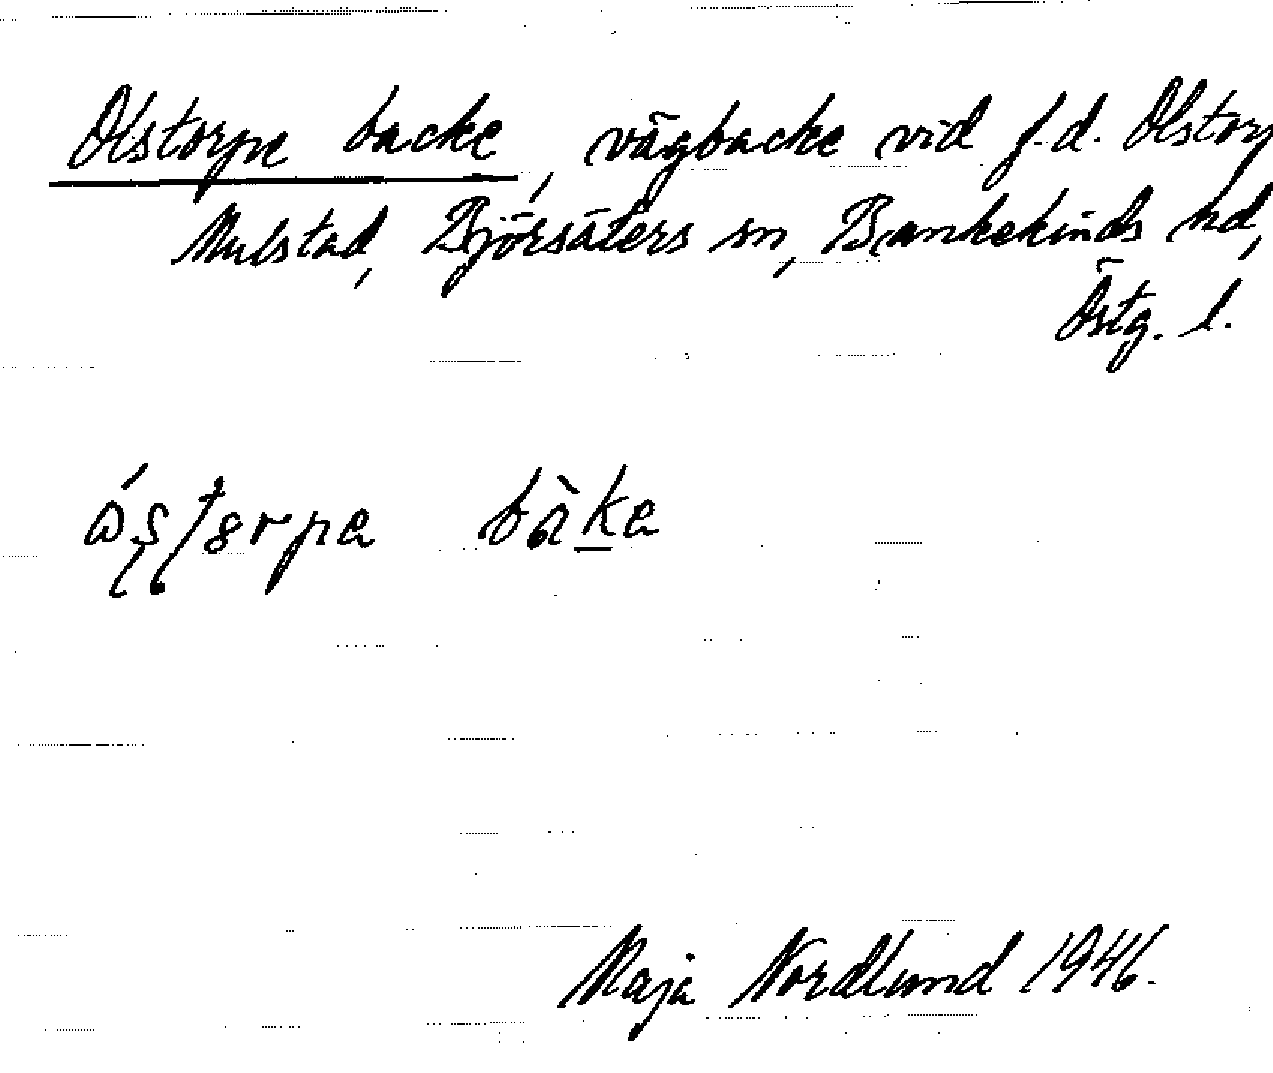 Olstorpe backe, vägbacke vid f.d. Olstorp
Mulstad, Björsäters sn, Bankekinds hd,
Östg. l.
bàke
Maja Nordlund 1946.